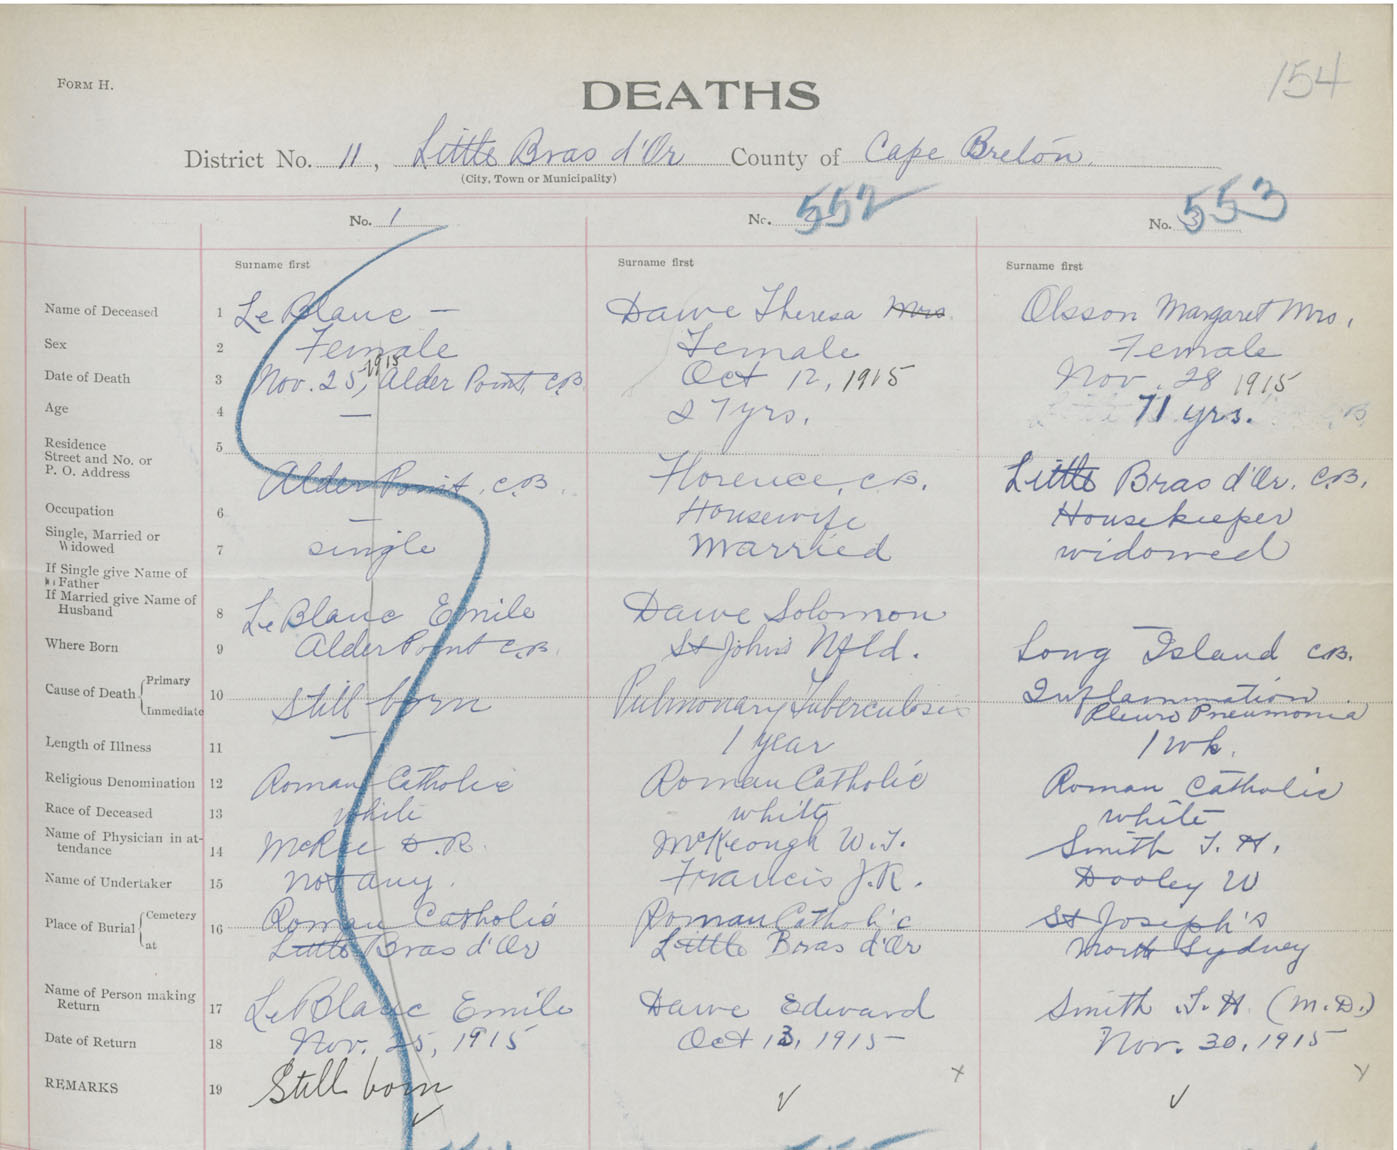 154
FORM H.
DEATHS
District No. 11, Little Bras d'Or County of Cape Breton.
(City, Town or Municipality)
No. 1 No. 552 No. 3 553
Surname first Surname first Surname first
Name of Deceased 1 Le Blanc — Dawe Theresa Mrs. Olsson Margaret Mrs.
Sex 2 Female Female Female
Date of Death 3 Nov. 25, 1915 Alder Point, C.B. Oct 12, 1915 Nov. 28 1915
Age 4 — 27 yrs. 71 yrs.
Residence Street and No. or P. O. Address 5 Alder Point, C.B. Florence, C.B. Little Bras d'Or, C.B.
Occupation 6 — Housewife Housekeeper
Single, Married or Widowed 7 single married widowed
If Single give Name of Father
If Married give Name of Husband 8 Le Blanc Emile Dawe Solomon —
Where Born 9 Alder Point C.B. St John's Nfld. Long Island C.B.
Cause of Death { Primary Immediate 10 Still born Pulmonary Tuberculosis Inflammation Pleuro Pneumonia
Length of Illness 11 — 1 year 1 wk.
Religious Denomination 12 Roman Catholic Roman Catholic Roman Catholic
Race of Deceased 13 white white white
Name of Physician in attendance 14 McRae D.R. McKeough W.T. Smith T.H.
Name of Undertaker 15 not any. Francis J.R. Dooley W
Place of Burial { Cemetery at 16 Roman Catholic Little Bras d'Or Roman Catholic Little Bras d'Or St Joseph's North Sydney
Name of Person making Return 17 Le Blanc Emile Dawe Edward Smith T.H. (M.D.)
Date of Return 18 Nov. 25, 1915 Oct 13, 1915 Nov. 30, 1915
REMARKS 19 Still born